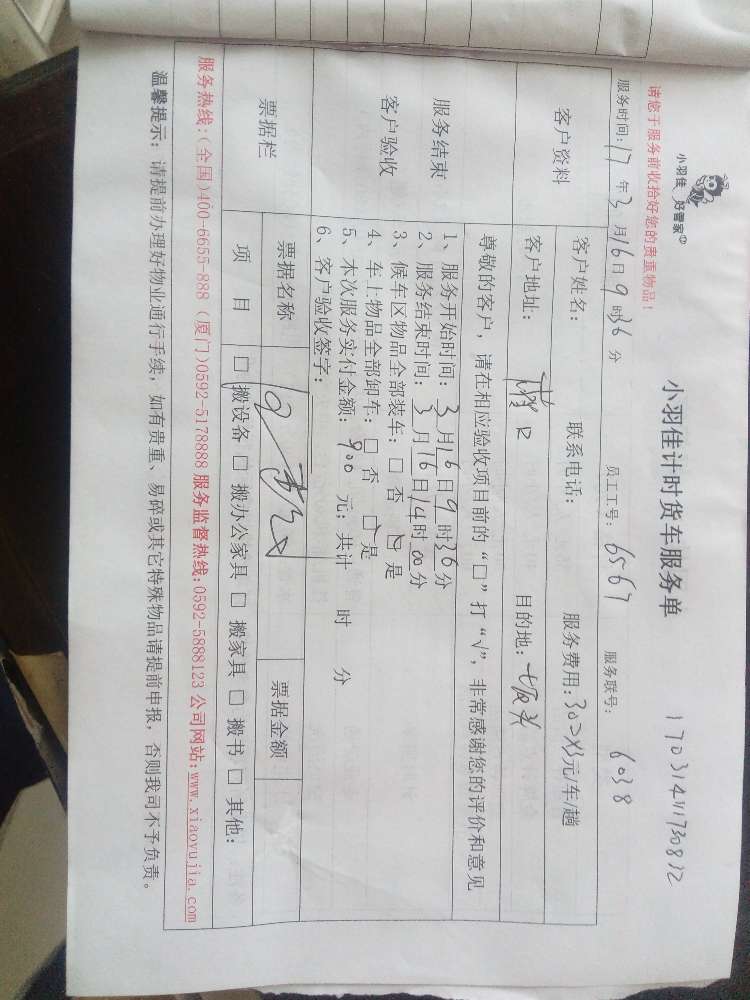 小羽佳 好管家
小羽佳计时货车服务单
17031411730812
请您于服务前收拾好您的贵重物品！
服务时间：17年3月16日9时36分 员工工号：6567 服务联号：6038
客户资料
客户姓名： 联系电话： 服务费用：302x3元/车/趟
客户地址：口 目的地：
服务结束
客户验收
尊敬的客户，请在相应验收项目前的“□”打“√”，非常感谢您的评价和意见
1、服务开始时间：3月16日9时36分
2、服务结束时间：3月16日14时00分
3、候车区物品全部装车：□ 否 □ 是
4、车上物品全部卸车：□ 否 □ 是
5、本次服务实付金额：900 元；共计 时 分
6、客户验收签字：
票据栏
票据名称 票据金额
项 目 □ 搬设备 □ 搬办公家具 □ 搬家具 □ 搬书 □ 其他：
服务热线：(全国)400-6655-888 (厦门)0592-5178888 服务监督热线：0592-5888123 公司网站：www.xiaoyujia.com
温馨提示：请提前办理好物业通行手续，如有贵重、易碎或其它特殊物品请提前申报，否则我司不予负责。